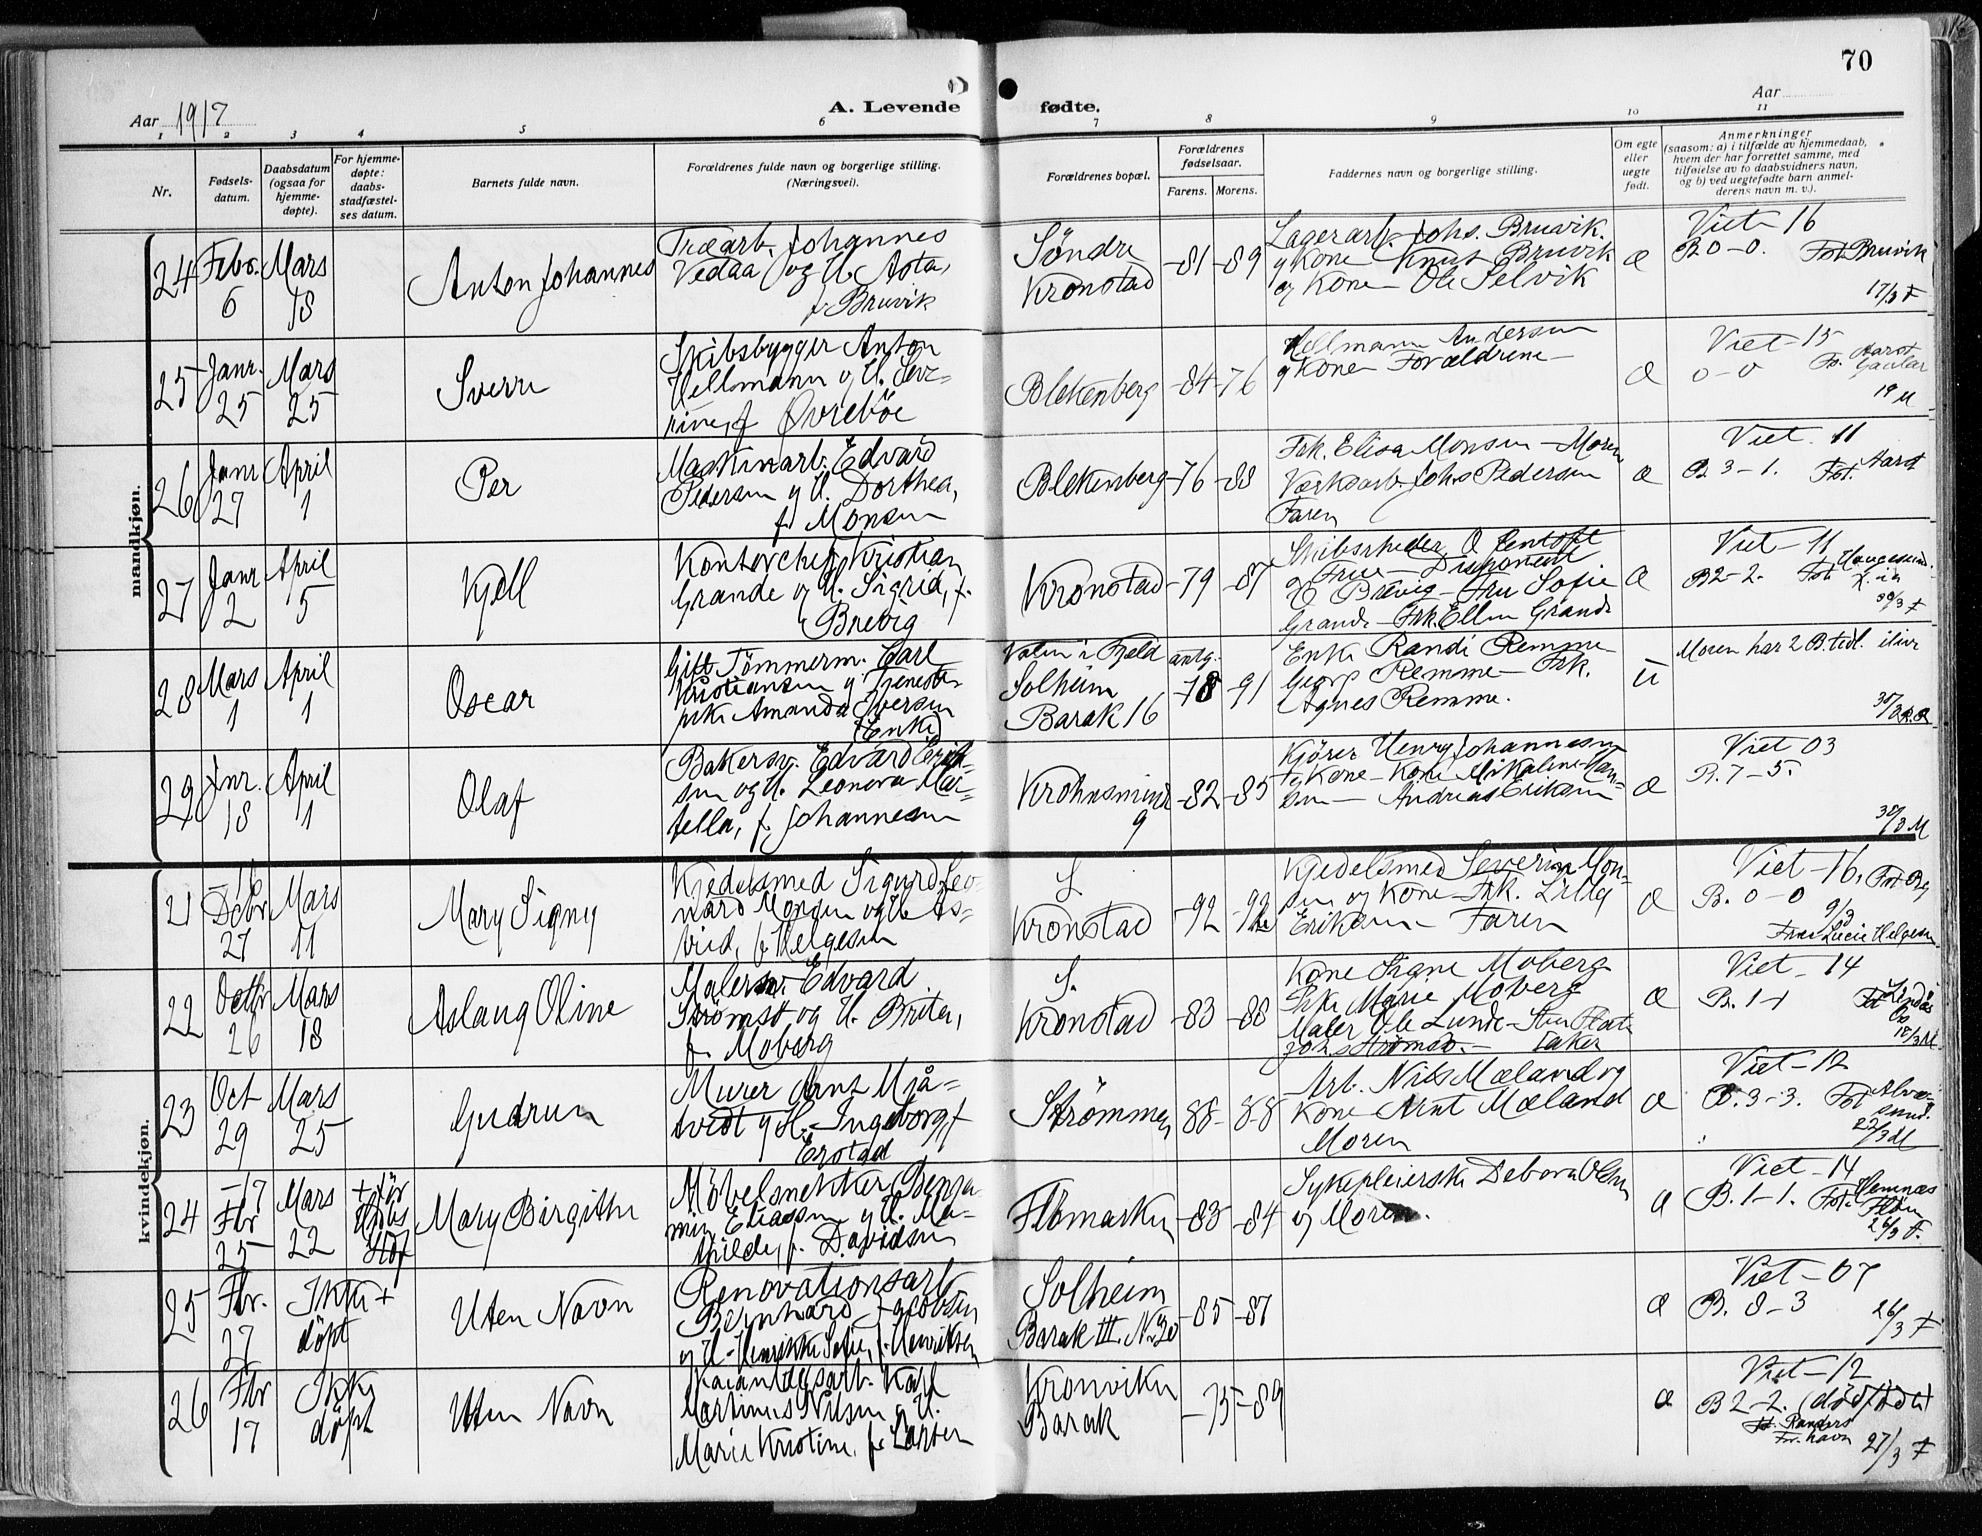 70
Aar 1917
A. Levende fødte.
Aar
1 2 3 4 5 6 7 8 9 10 11
Nr.
Fødsels-
datum.
Daabsdatum
(ogsaa for
hjemme-
døpte).
For hjemme-
døpte:
daabs-
stadfæstel-
ses datum.
Barnets fulde navn.
Forældrenes fulde navn og borgerlige stilling.
(Næringsvei).
Forældrenes bopæl.
Forældrenes
fødselsaar.
Farens. Morens.
Faddernes navn og borgerlige stilling.
Om egte
eller
uegte
født.
Anmerkninger
(saasom: a) i tilfælde av hjemmedaab,
hvem der har forrettet samme, med
tilføielse av to daabsvidners navn,
og b) ved uegtefødte barn anmel-
derens navn m. v.).
mandkjøn.
24
Febr.
6
Mars
18
Anton Johannes
Træarb. Johannes
Vedaa og H. Asta,
f. Bruvik
Söndre
Kronstad
-81 -89
Lagerarb. Johs. Bruvik.
og Kone Knut Bruvik
og Kone - Ole Selvik
æ
Viet - 16
B 0-0. Fst. Bruvik
17/3 F
25
Janr.
25
Mars
25
Sverre
Skibsbygger Anton
Hellmann og H. Seve-
rine, f. Øvreböe
Blekenberg
-84 -76
Hellmann Andersen
og Kone Forældrene
æ
Viet - 15
0-0
19 M
26
Janr.
27
April
1
Per
Maskinarb. Edvard
Pedersen og H. Dorthea,
f. Monsen
Blekenberg
-76 -88
Frk. Elisa Monsen - Moren
Værksarb. Johs Pedersen
Faren
æ
Viet - 11
B. 3-1. Fst. Aarst
27
Janr
2
April
5
Kjell
Kontorchef Kristian
Grande og H. Sigrid, f.
Brevig
Kronstad
-79 -87
Skibsrheder O Jentoft
og Frue - Disponent
Brevig - Fru Sofie
Grande - Frk. Ellen Grande
æ
Viet - 11
B 2-2. Fst
30/3 F
28
Mars
1
April
1
Oscar
Gift Tømmerm. Carl
Kristiansen og Tjeneste-
pike Amanda Iversen
(Enke)
Valen i Fjeld
Solheim
Barak 16
antg.
-78 -91
Enke Randi Remme
Georg Remme - Frk.
Agnes Remme.
u
Moren har 2 B. tidl. ilive
29
Jnr.
18
April
1
Olaf
Bakersv. Edvard Erik-
sen og H. Leonora Mar-
tella, f. Johannesen
Krohnsminde
9
-82 -85
Kjörer Henry Johannesen
og Kone - Kone Mikaline Han-
sen - Andreas Eriksen
æ
Viet 03
B. 7-5.
30/3 M
kvindekjøn.
21
Debr
27
Mars
11
Mary Signy
Kjedelsmed Sigurd Leo-
nard Monsen og H. As-
trid, f. Helgesen
S.
Kronstad
-92 -92
Kjedelsmed Severin Mon-
sen og Kone - Frk. Lilly
Eriksen - Faren
æ
Viet - 16, Fst Bg
B. 0-0 9/3
Frøk Lucie Helgesen
22
Octbr
26
Mars
18
Aslaug Oline
Malersv. Edvard
Strømsø og H. Brita,
f. Moberg
S.
Kronstad
-83 -88
Kone Signe Moberg
Pike Marie Moberg
Maler Ole Lunde -
Johs Strømsø.
æ
Viet - 14
B. 1-1 Fst Lindås
18/3 M
23
Oct
29
Mars
25
Gudrun
Murer Arnt Mjå-
tvedt og H. Ingeborg, f.
Erstad
Strømmen
88- -88
Arb. Nils Mæland og
Kone Arnt Mæland
Moren
æ
Viet - 12
B. 3-3. Fst Alver-
sund.
22/3 M
24
-17
Fbr
25
Mars
22
+ før
Mary Birgithe
Möbelsnekker Benja-
min Eliassen og H. Ma-
thilde, f. Davidsen
Flömarken
-83 -84
Sykepleierske Debora Olsen
og Moren.
æ
Viet - 14
B. 1-1. Fst. Hemnæs
26/3 F.
25
Fbr.
27
Ikke +
döpt
Uten Navn
Renovationsarb
Bernhard Jacobsen
og H. Henrikke Sofie, f. Henriksen
Solheim
Barak III. N. 20
-85 -87
æ
Viet - 07
B. 8-3
26/3 F
26
Fbr
17
Ikke
döpt
Uten Navn
Karl
Martinus Nilsen og H.
Marie Kristine, f. Larsen
Kronviken
Barak
-75 -89
æ
Viet - 12
B 2-2. (dödfödt)
Fst. Randers
27/3 F